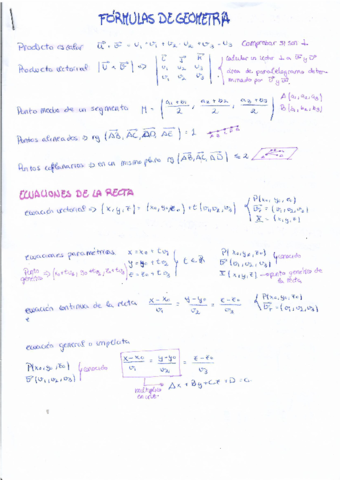 FÓRMULAS DE GEOMETRÍA
Producto escalar u⃗ · v⃗ = u₁·v₁ + u₂·v₂ + u₃·v₃ Comprobar si son ⊥
Producto vectorial
calcular un vector ⊥ a u⃗ y v⃗
área de paralelogramo determinado por u⃗ y v⃗
Punto medio de un segmento M = (a₁+b₁ / 2, a₂+b₂ / 2, a₃+b₃ / 2) A(a₁, a₂, a₃)
B(b₁, b₂, b₃)
Puntos alineados
= 1
Puntos coplanarios o en un mismo plano rg (AB, AC, AD) ≤ 2
ECUACIONES DE LA RECTA
ecuación vectorial ⇒ (x, y, z) = (x₀, y₀, z₀) + t(v₁, v₂, v₃)
P(x₀, y₀, z₀)
= (v₁, v₂, v₃)
= (x, y, z)
ecuaciones paramétricas x = x₀ + tv₁
y = y₀ + tv₂ t ∈ ℝ
z = z₀ + tv₃
Punto genérico
P(x₀, y₀, z₀)
v⃗ (v₁, v₂, v₃) conocido
X(x, y, z) → punto genérico de la recta
ecuación continua de la recta x−x₀ / v₁ = y−y₀ / v₂ = z−z₀ / v₃
P(x₀, y₀, z₀)
= (v₁, v₂, v₃)
ecuación general o implícita
P(x₀, y₀, z₀)
v⃗ (v₁, v₂, v₃) conocido
x−x₀ / v₁ = y−y₀ / v₂ = z−z₀ / v₃
Ax + By + Cz + D = 0